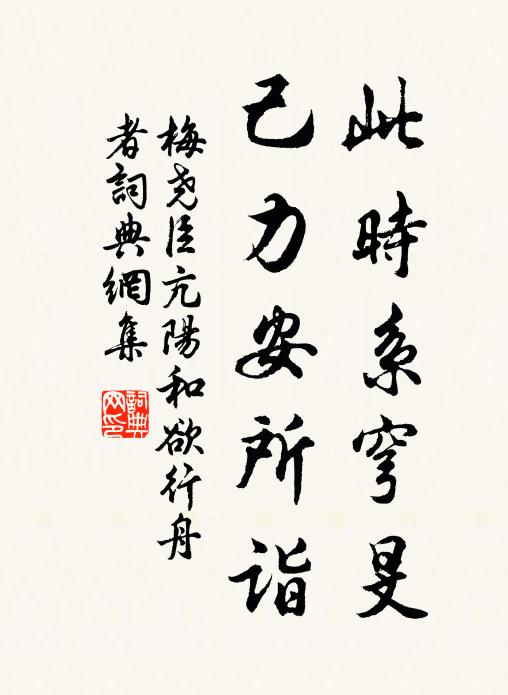 此時系穹旻
己力安所詣
梅堯臣亢陽和欲行舟
者詞典網集
詞典
网印